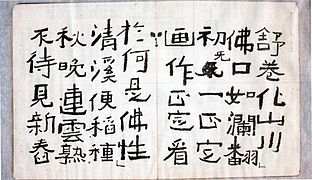 舒卷化山川
佛口如瀾翻」
初无一正定
画作正定看
於何是佛性」
清溪便稻種
秋晩連雲熟
不待見新舂